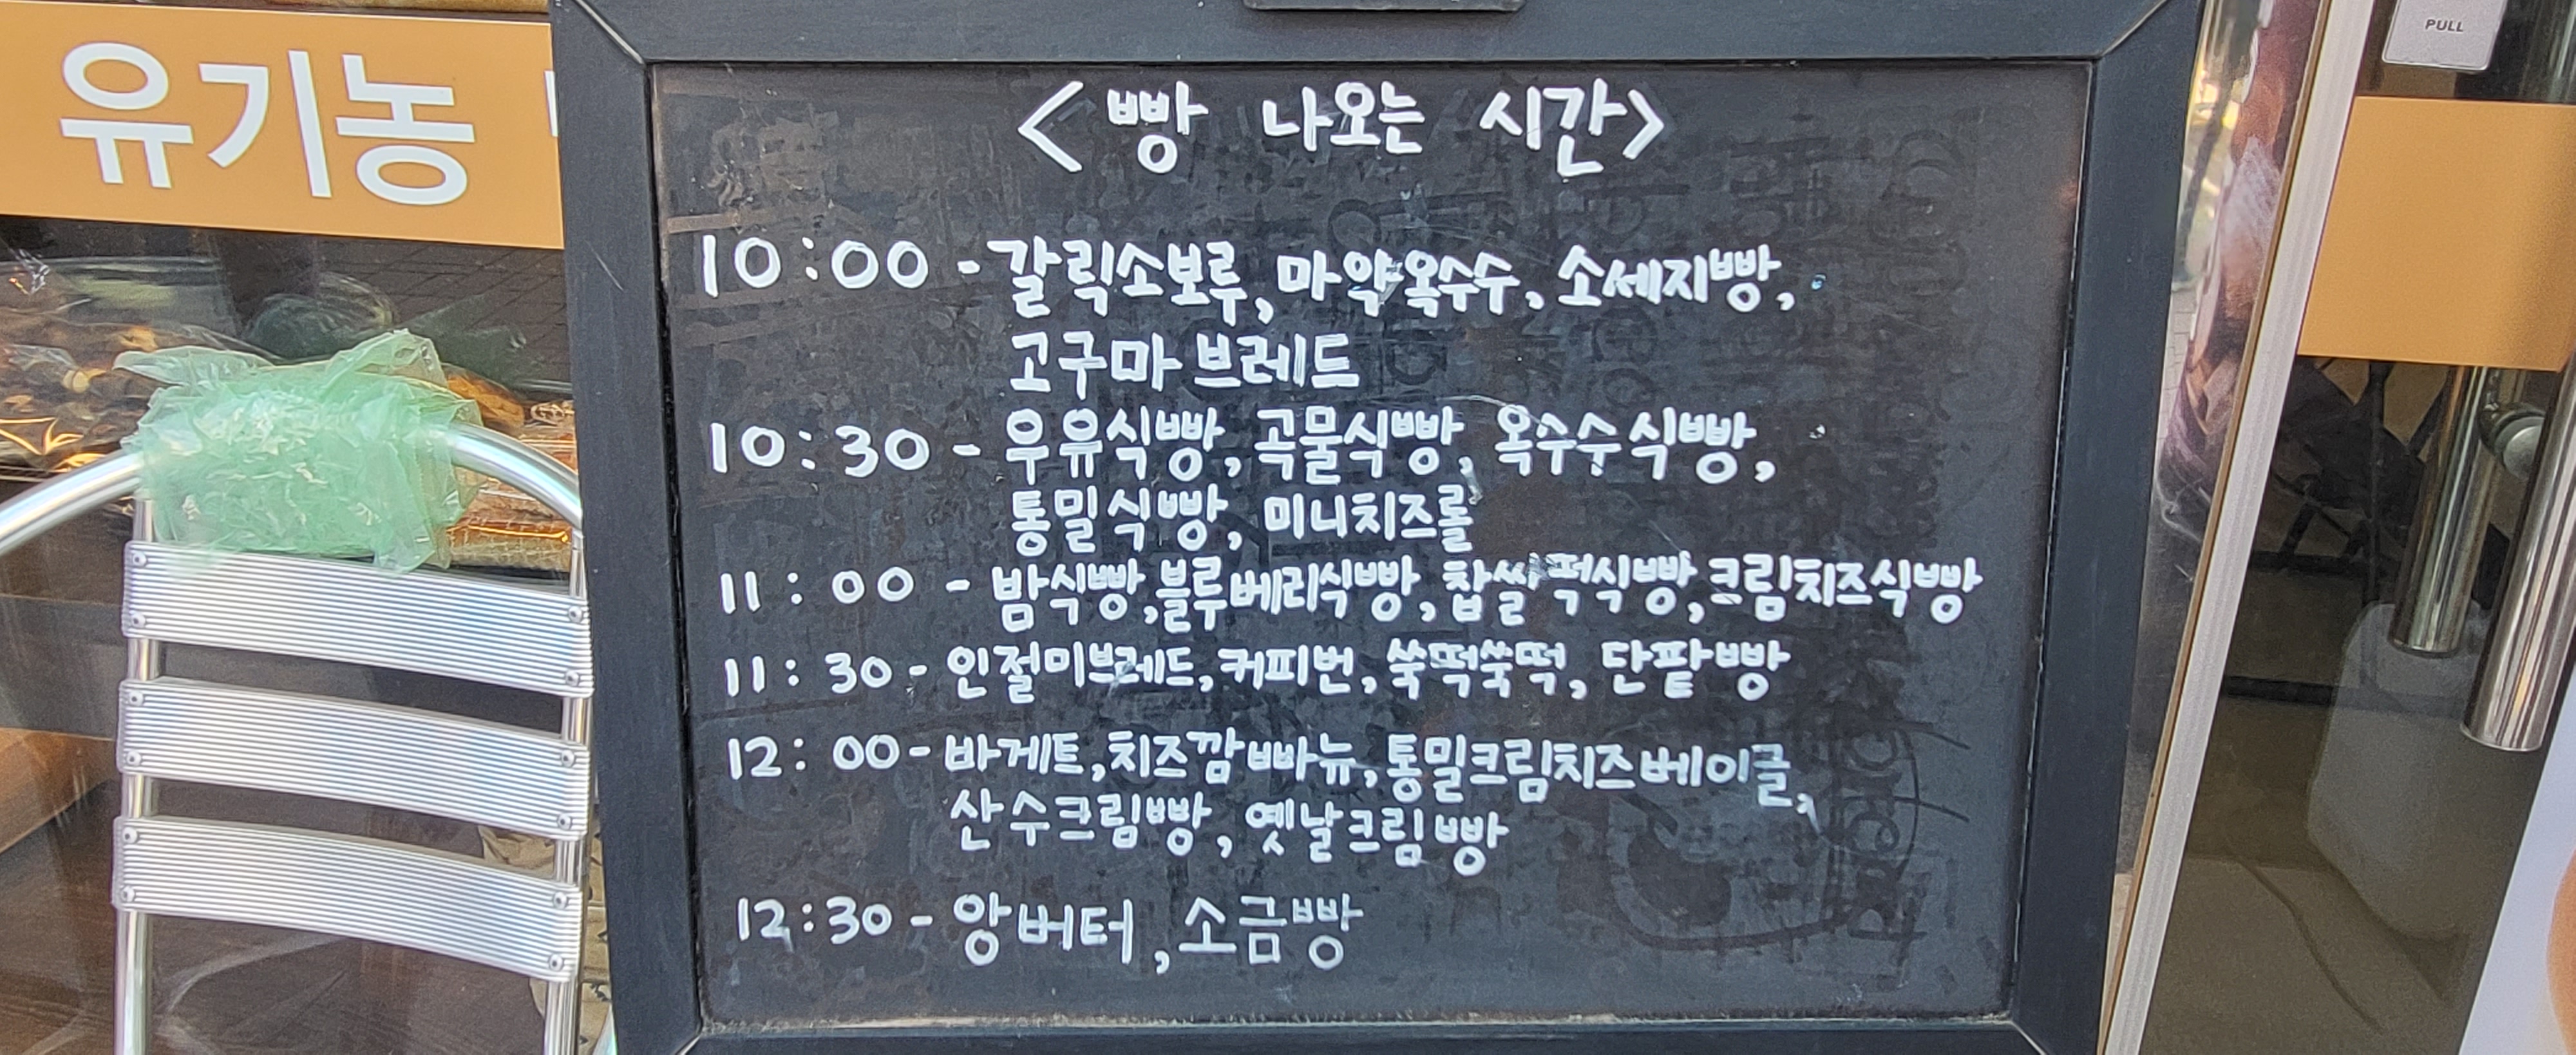 유기농
PULL
< 빵 나오는 시간>
10:00 - 갈릭소보루, 마약옥수수, 소세지빵,
고구마 브레드
10:30 - 우유식빵, 곡물식빵, 옥수수식빵,
통밀식빵, 미니치즈롤
11:00 - 밤식빵, 블루베리식빵, 찹쌀떡식빵, 크림치즈식빵
11:30 - 인절미브레드, 커피번, 쑥떡쑥떡, 단팥빵
12:00 - 바게트, 치즈깜빠뉴, 통밀크림치즈베이글,
산수크림빵, 옛날크림빵
12:30 - 앙버터, 소금빵